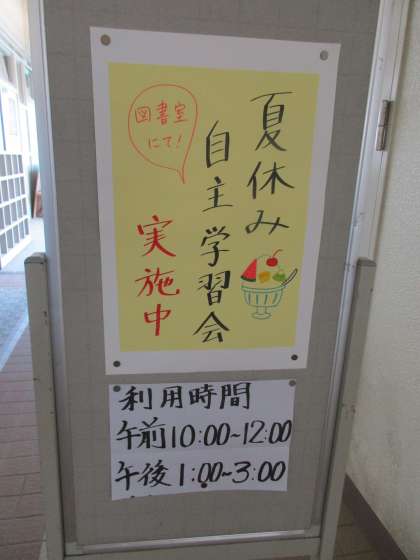 夏休み
自主学習会
実施中
図書室
にて!
利用時間
午前10:00~12:00
午後1:00~3:00